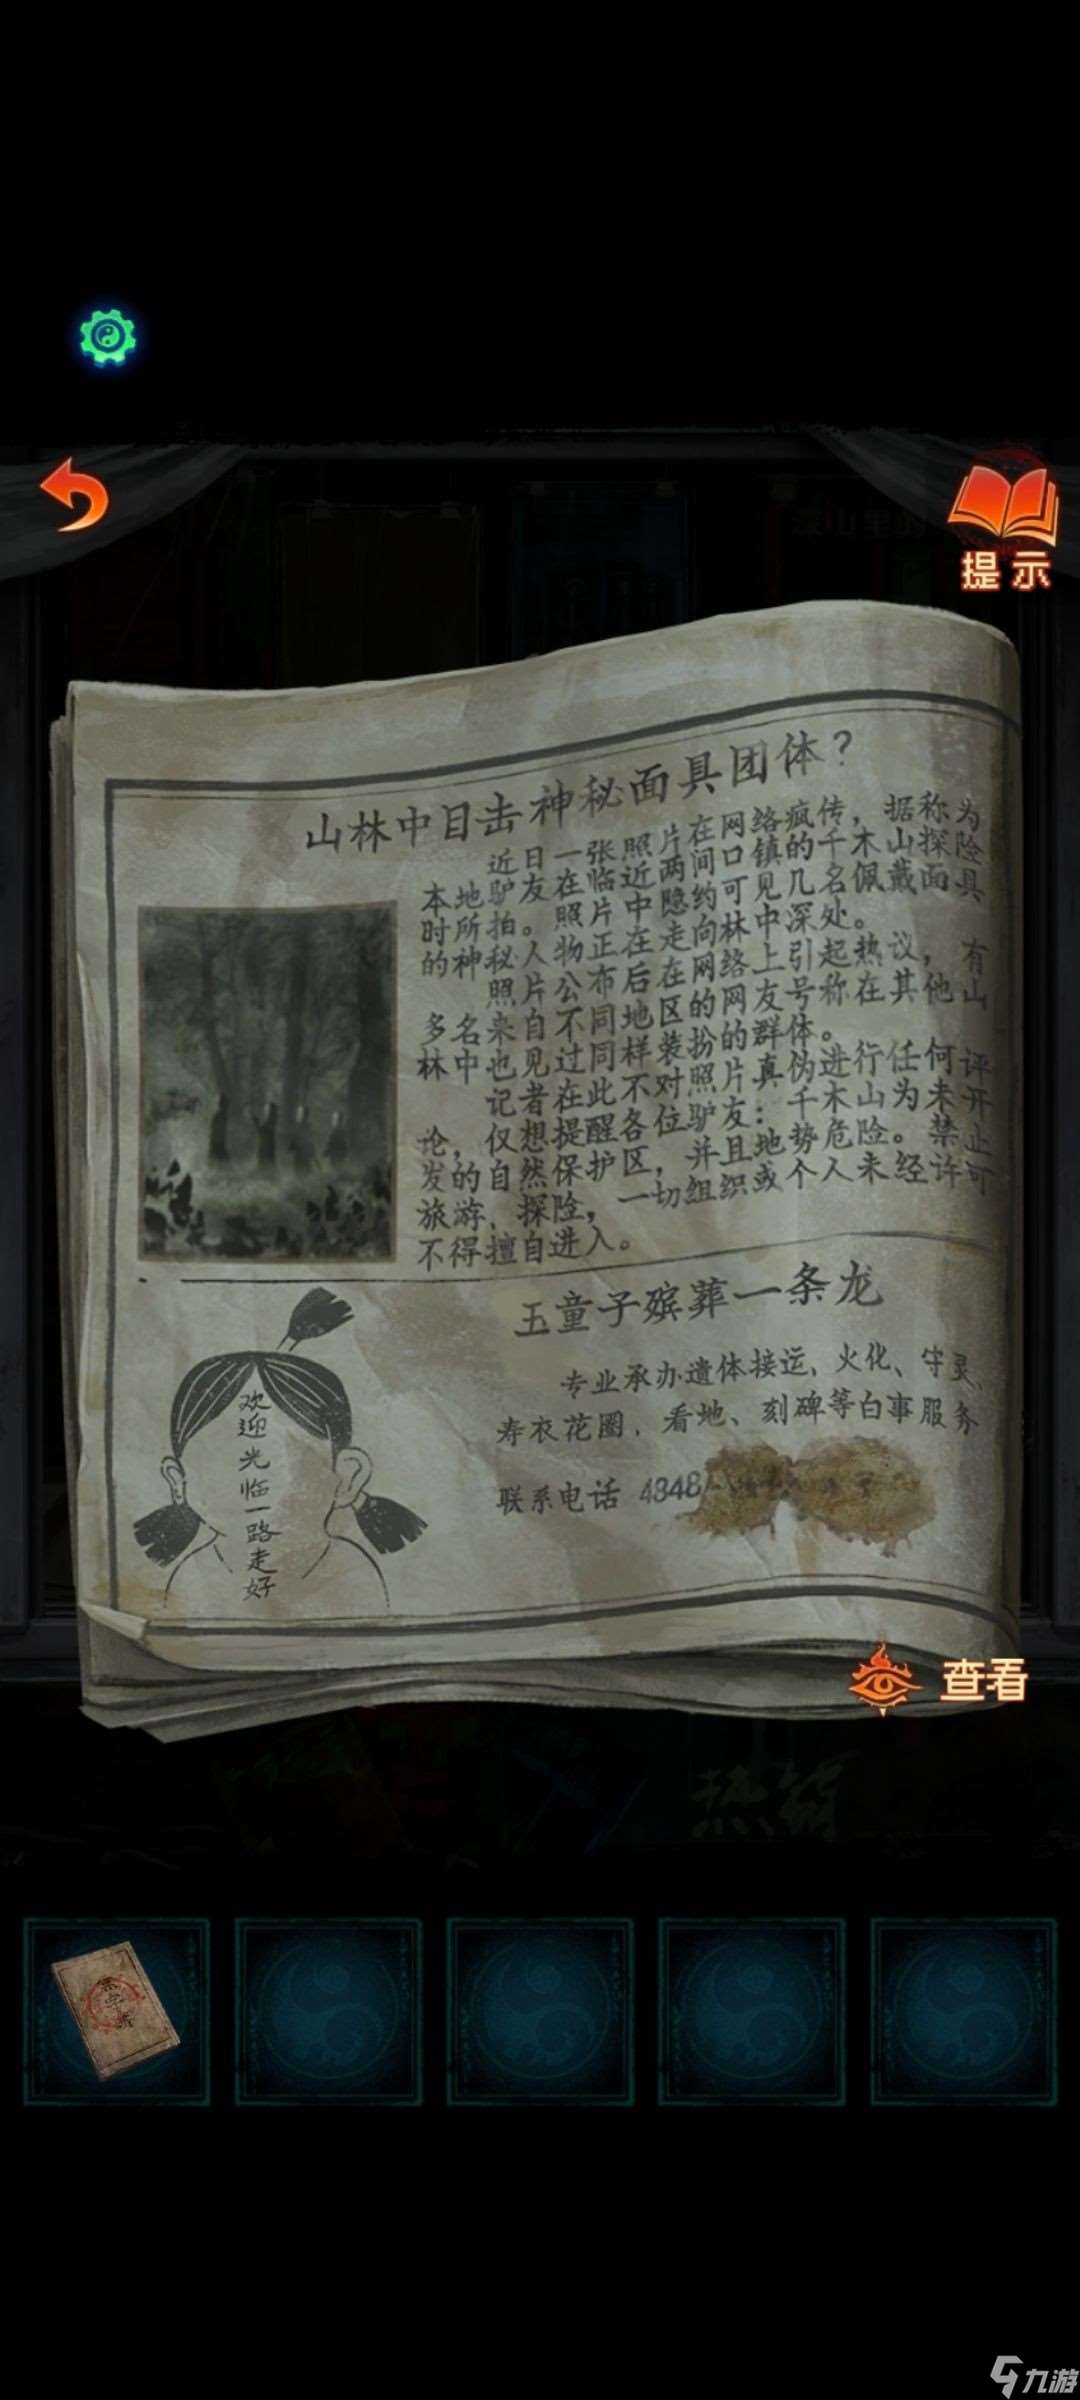 提示
山林中目击神秘面具团体？
近日一张照片在网络疯传，据称为
本地驴友在临近两间口镇的千木山探险
时所拍。照片中隐约可见几名佩戴面具
的神秘人物正在走向林中深处。
照片公布后在网络上引起热议，有
多名来自不同地区的网友号称在其他山
林中也见过同样装扮的群体。
记者在此不对照片真伪进行任何评
论，仅想提醒各位驴友：千木山为未开
发的自然保护区，并且地势危险。禁止
旅游、探险，一切组织或个人未经许可
不得擅自进入。
五童子殡葬一条龙
专业承办遗体接运、火化、守灵、
寿衣花圈、看地、刻碑等白事服务
联系电话 4848
欢迎光临一路走好
查看
热销
九游